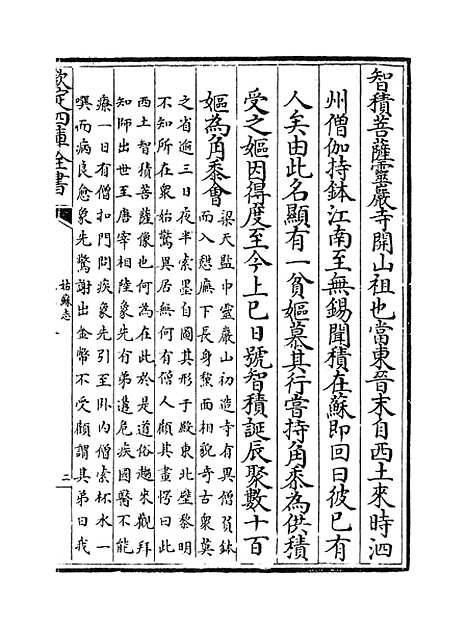 智積菩薩靈巖寺開山祖也當東晉末自西土來時泗
州僧伽持鉢江南至無錫聞積在蘇即回曰彼已有
人矣由此名顯有一貧嫗慕其行嘗持角黍為供積
受之嫗因得度至今上巳日號智積誕辰聚數十百
嫗為角黍會
梁天監中靈巖山初造寺有異僧負鉢
而入憩廡下長身黧面相貌奇古衆莫
之省逾三日夜半索墨自圖其形于殿東北壁黎明
不知所在衆始驚異居無何有僧人顧其畫愕曰此
西土智積菩薩像也何為在此於是道俗趨來觀拜
知師出世至唐宰相陸象先有弟遘危疾國醫不能
療一日有僧扣門問疾象先引至卧内僧索杯水一
噀而病良愈象先驚謝出金幣不受顧謂其弟曰我
欽定四庫全書
姑蘇志
二